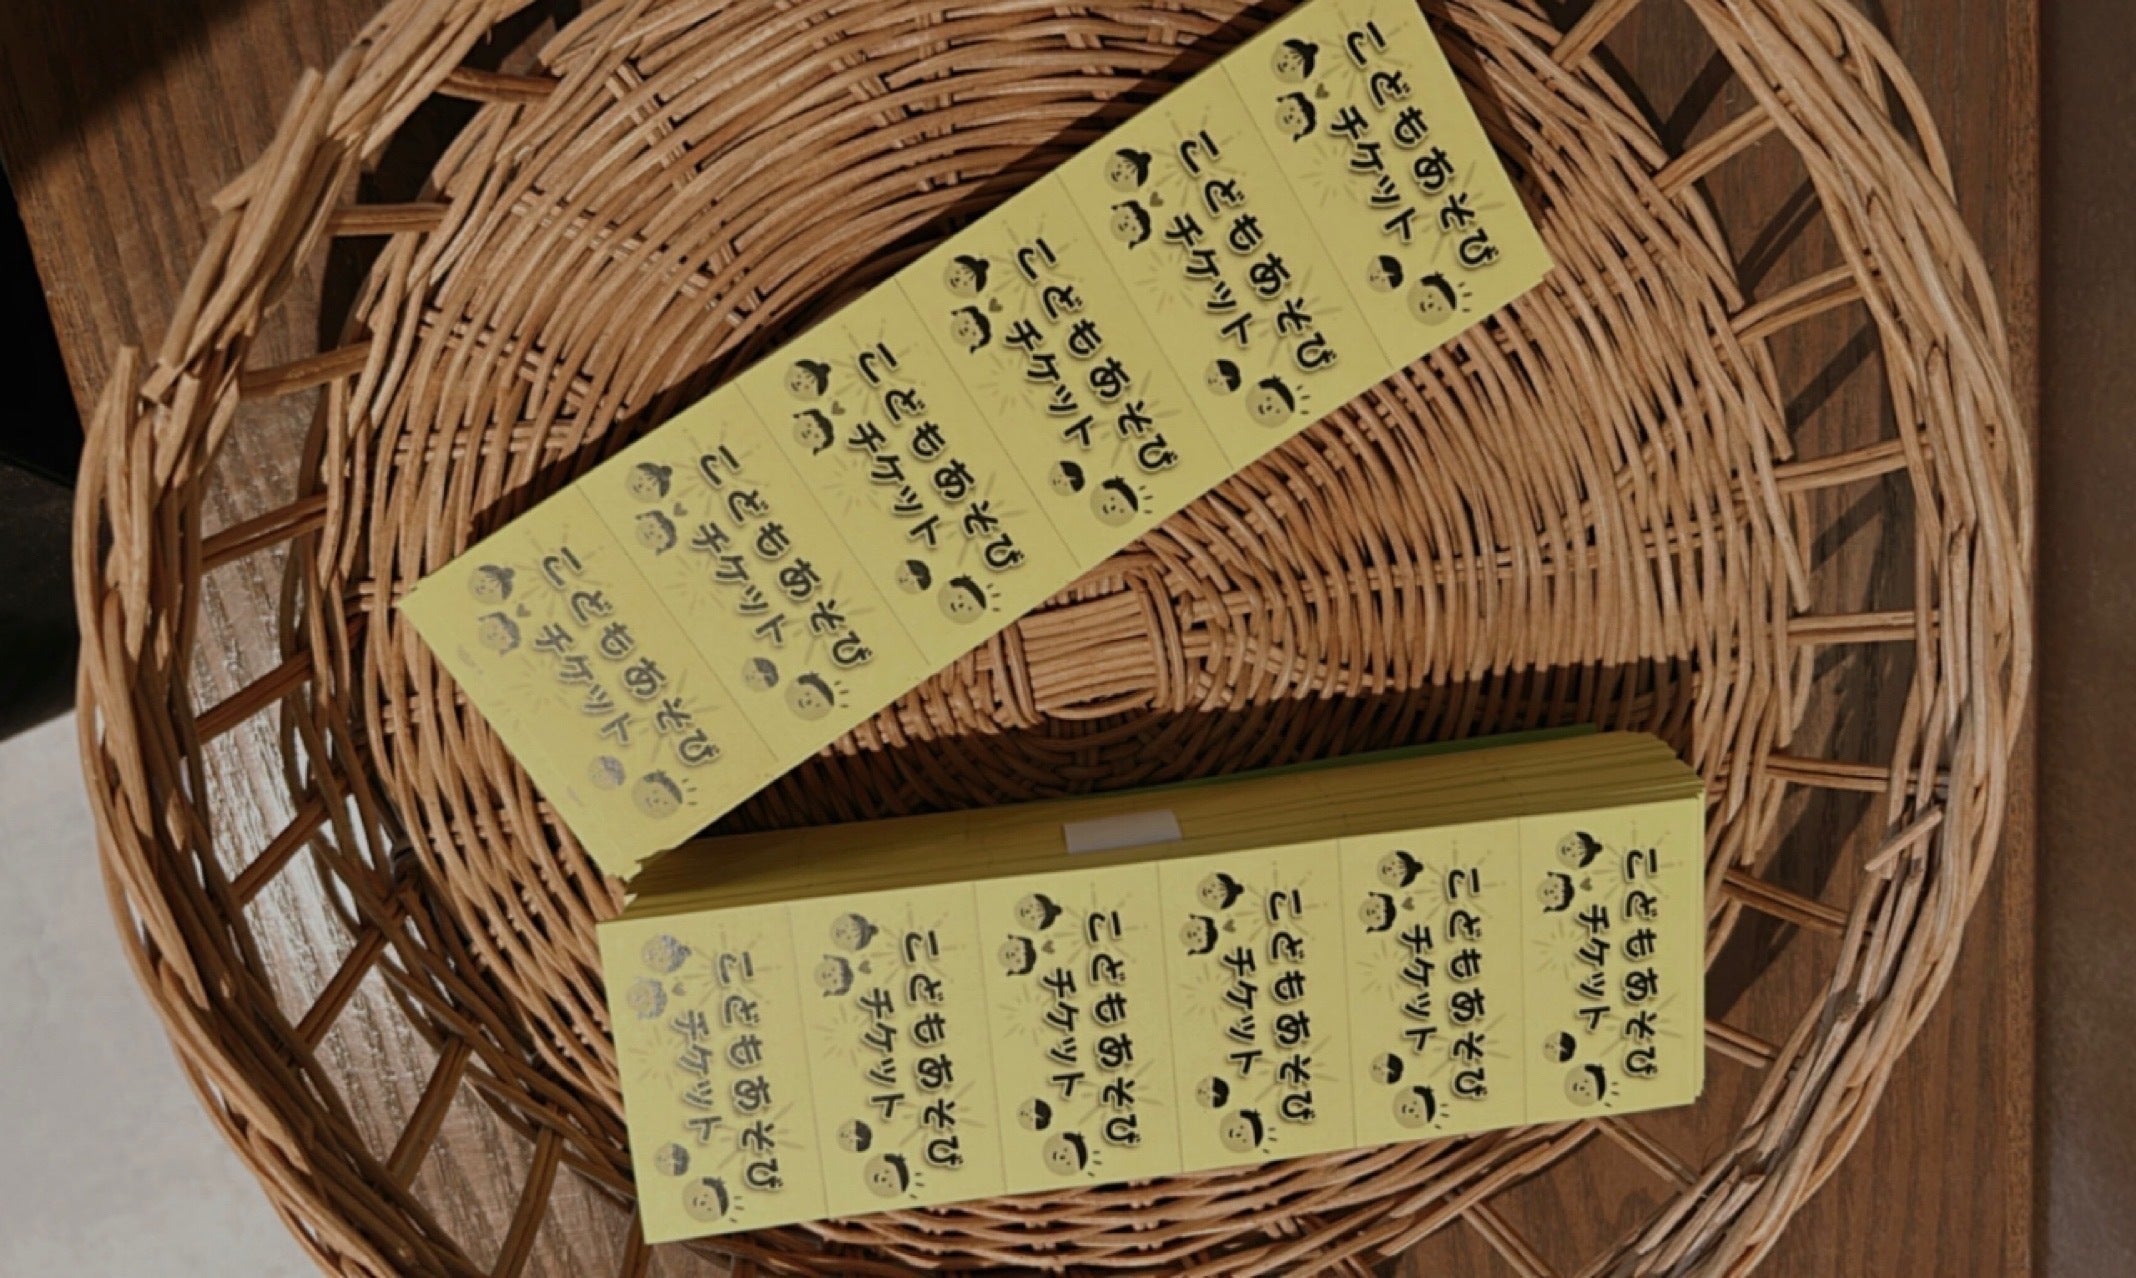 こどもあそび
チケット
こどもあそび
チケット
こどもあそび
チケット
こどもあそび
チケット
こどもあそび
チケット
こどもあそび
チケット
こどもあそび
チケット
こどもあそび
チケット
こどもあそび
チケット
こどもあそび
チケット
こどもあそび
チケット
こどもあそび
チケット